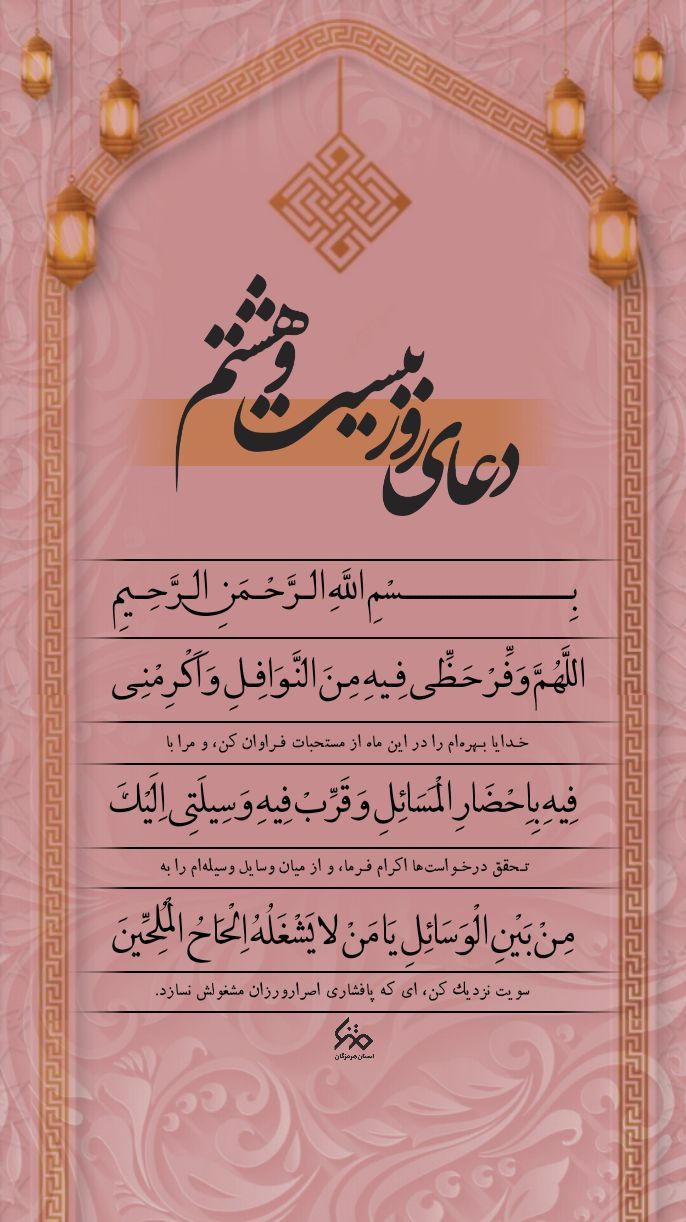 دعای روز بیست و هشتم
بِسْمِ اللَّهِ الرَّحْمَنِ الرَّحِيمِ
اللَّهُمَّ وَفِّرْ حَظِّی فِیهِ مِنَ النَّوَافِلِ وَ أَكْرِمْنِی
خدایا بهره‌ام را در این ماه از مستحبات فراوان کن، و مرا با
فِیهِ بِإِحْضَارِ الْمَسَائِلِ وَ قَرِّبْ فِیهِ وَسِیلَتِی إِلَیْكَ
تحقق درخواست‌ها اکرام فرما، و از میان وسایل وسیله‌ام را به
مِنْ بَیْنِ الْوَسَائِلِ یَا مَنْ لا یَشْغَلُهُ إِلْحَاحُ الْمُلِحِّینَ
سویت نزدیك کن، ای که پافشاری اصرارورزان مشغولش نسازد.
استان هرمزگان